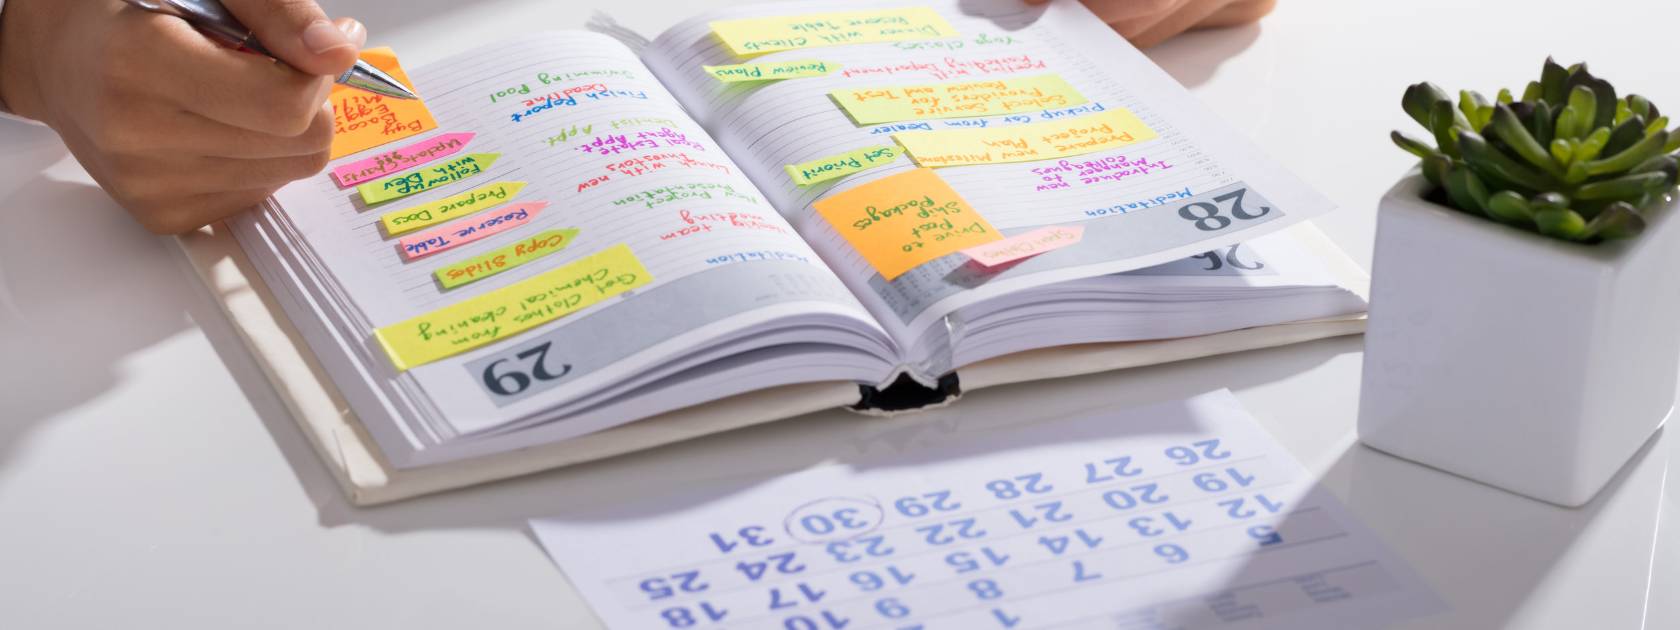 28
26
Meditation
Introduce new
manager to
colleagues
Prepare new Milestone
Project Plan
Pickup Car from Dealer
Select Service
Providers for
Review and Test
Meeting with
Marketing Department
Yoga Classes
Dinner with Clients
Reserve Table
Drive to
Post
Ship
Packages
Set Priorit
Review Plans
29
Meditation
Weekly team
meeting
New Project
Presentation
Lunch with new
Investors
Real Estate
Agent Appt.
Dentist Appt.
Finish Report
Deadline
Swimming
Pool
Get Clothes from
Chemical cleaning
Copy Slides
Reserve Table
Prepare Docs
Follow up
with Dev
Update Charts
Buy
Bacon
Eggs
1
5 6 7 8 9 10
12 13 14 15 16 17 18
19 20 21 22 23 24 25
26 27 28 29 30 31